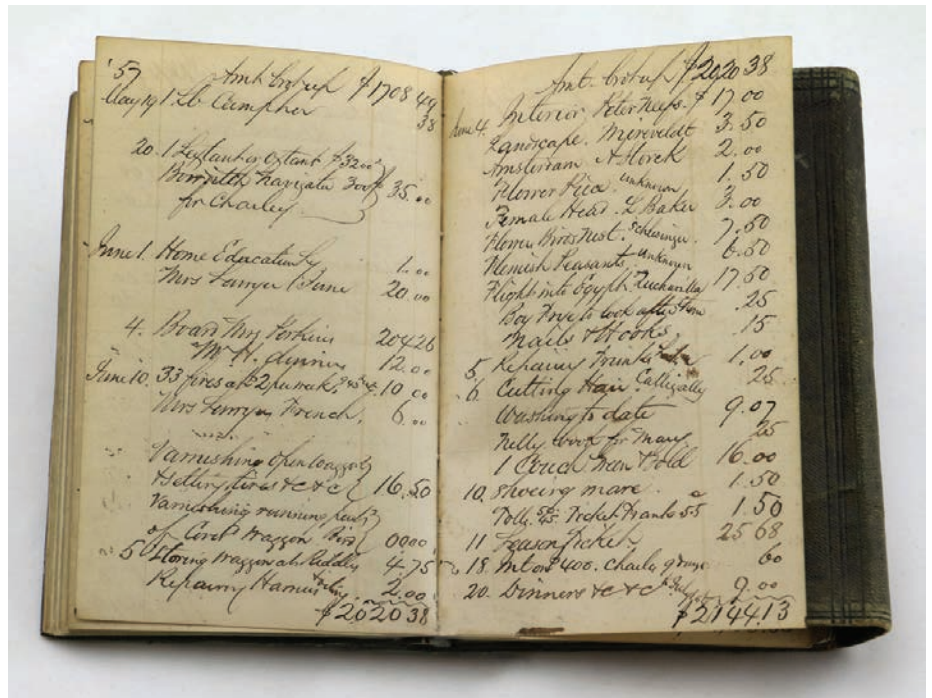 '57 Amt brot up $1708 49
May 19 1 Lb Camphor 38
20. 1 Sextant or Octant $32 00
Navigator 3 00 35.00
for Charley
June 1. Home Education 1.00
Mrs Sawyer 1 June 20.00
4. Board Mrs Perkins 204 26
Mr H. dinners 12.00
June 10. 33 fires at $2 per week 10 00
Mrs Sawyer French 6.00
Varnishing open waggon
& Setting tires &c &c 16.50
Varnishing running parts
of Cov'd Waggon 00 00
5 Storing waggon at 4.75
Repairing Harness 2.00
$2020 38
Amt. brot up $2020 38
June 4. Interior, Peter Neefs. $17.00
Landscape. Mireveldt 3.50
Amsterdam A Storck 2.00
Flower Piece unknown 1.50
Female Head. L Baker 3.00
Flower Birds Nest. Schlesinger. 7.50
Flemish Peasants unknown 6.50
Flight into Egypt. Zuccarelli 17.50
Boy Frye to look after 25
Nails & Hooks. 15
5. Repairing Trunk 1.00
6. Cutting Hair 25
Washing to date 9.07
for Mary 25
1 Couch Green & Gold 16.00
10. Shoeing mare. 1.50
Tolls Ticket 1.50
11 Season Ticket. 25 68
18. Int on $400. Charles 60
20. Dinners &c &c 9.00
$2144.13